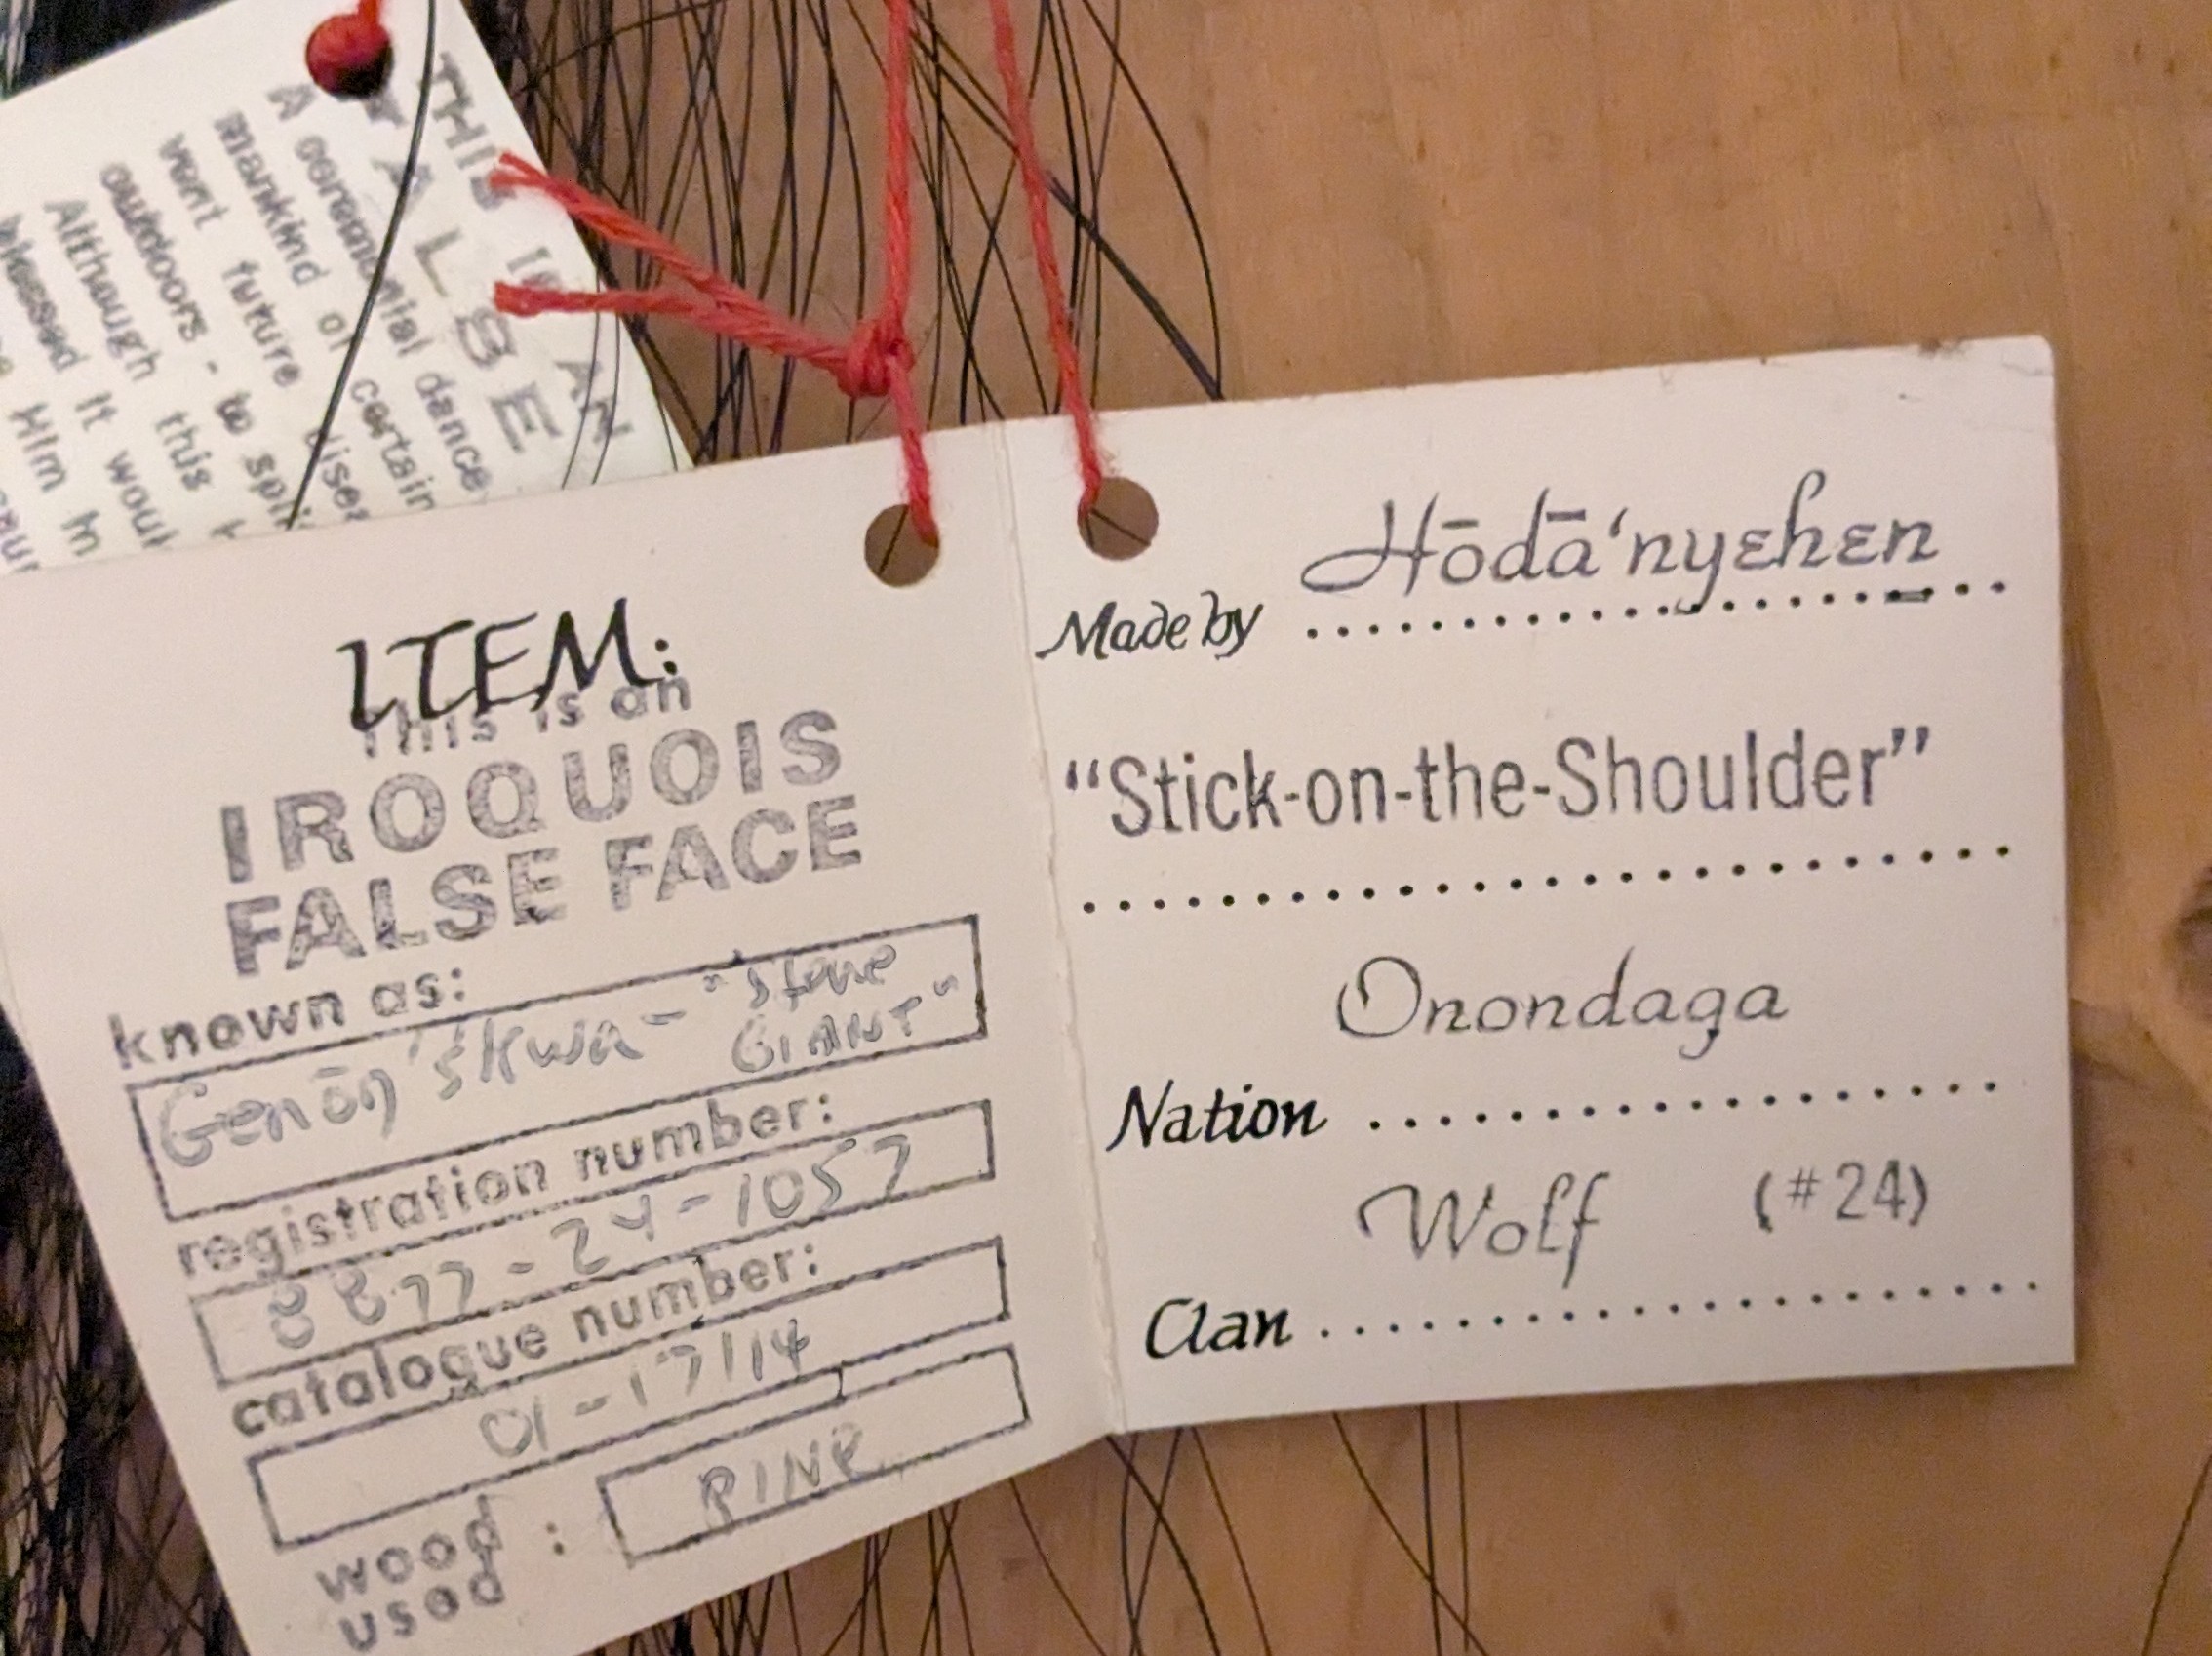 THIS IS AN
FALSE
A ceremonial dance
mankind of certain
vent future
outdoors - to
Although this
blessed It
Him in
ITEM:
This is an
IROQUOIS
FALSE FACE
known as:
Genōn'skwa - "Stone
GIANT"
registration number:
8877-24-1057
catalogue number:
01-17114
wood
used : PINE
Hōdā'nyɛhɛn
Made by ....................
“Stick-on-the-Shoulder”
............................
Onondaga
Nation ...................
Wolf (#24)
Clan ......................